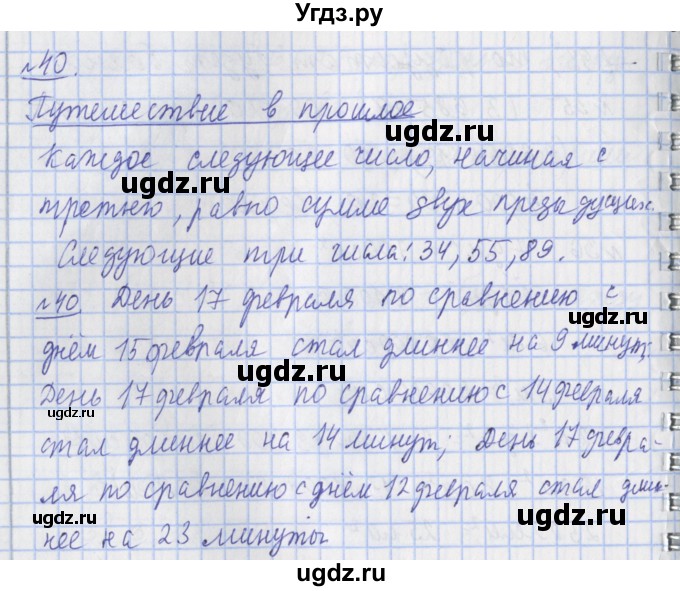 Угдз.ру
№40.
Путешествие в прошлое
Каждое следующее число, начиная с
третьего, равно сумме двух предыдущих.
Следующие три числа: 34, 55, 89.
№40 День 17 февраля по сравнению с
днём 15 февраля стал длиннее на 9 минут;
День 17 февраля по сравнению с 14 февраля
стал длиннее на 14 минут; День 17 февра-
ля по сравнению с днём 12 февраля стал длин-
нее на 23 минуты
ugdz.ru
ugdz.ru
ugdz.ru
ugdz.ru
ugdz.ru
ugdz.ru
ugdz.ru
ugdz.ru
ugdz.ru
ugdz.ru
ugdz.ru
ugdz.ru